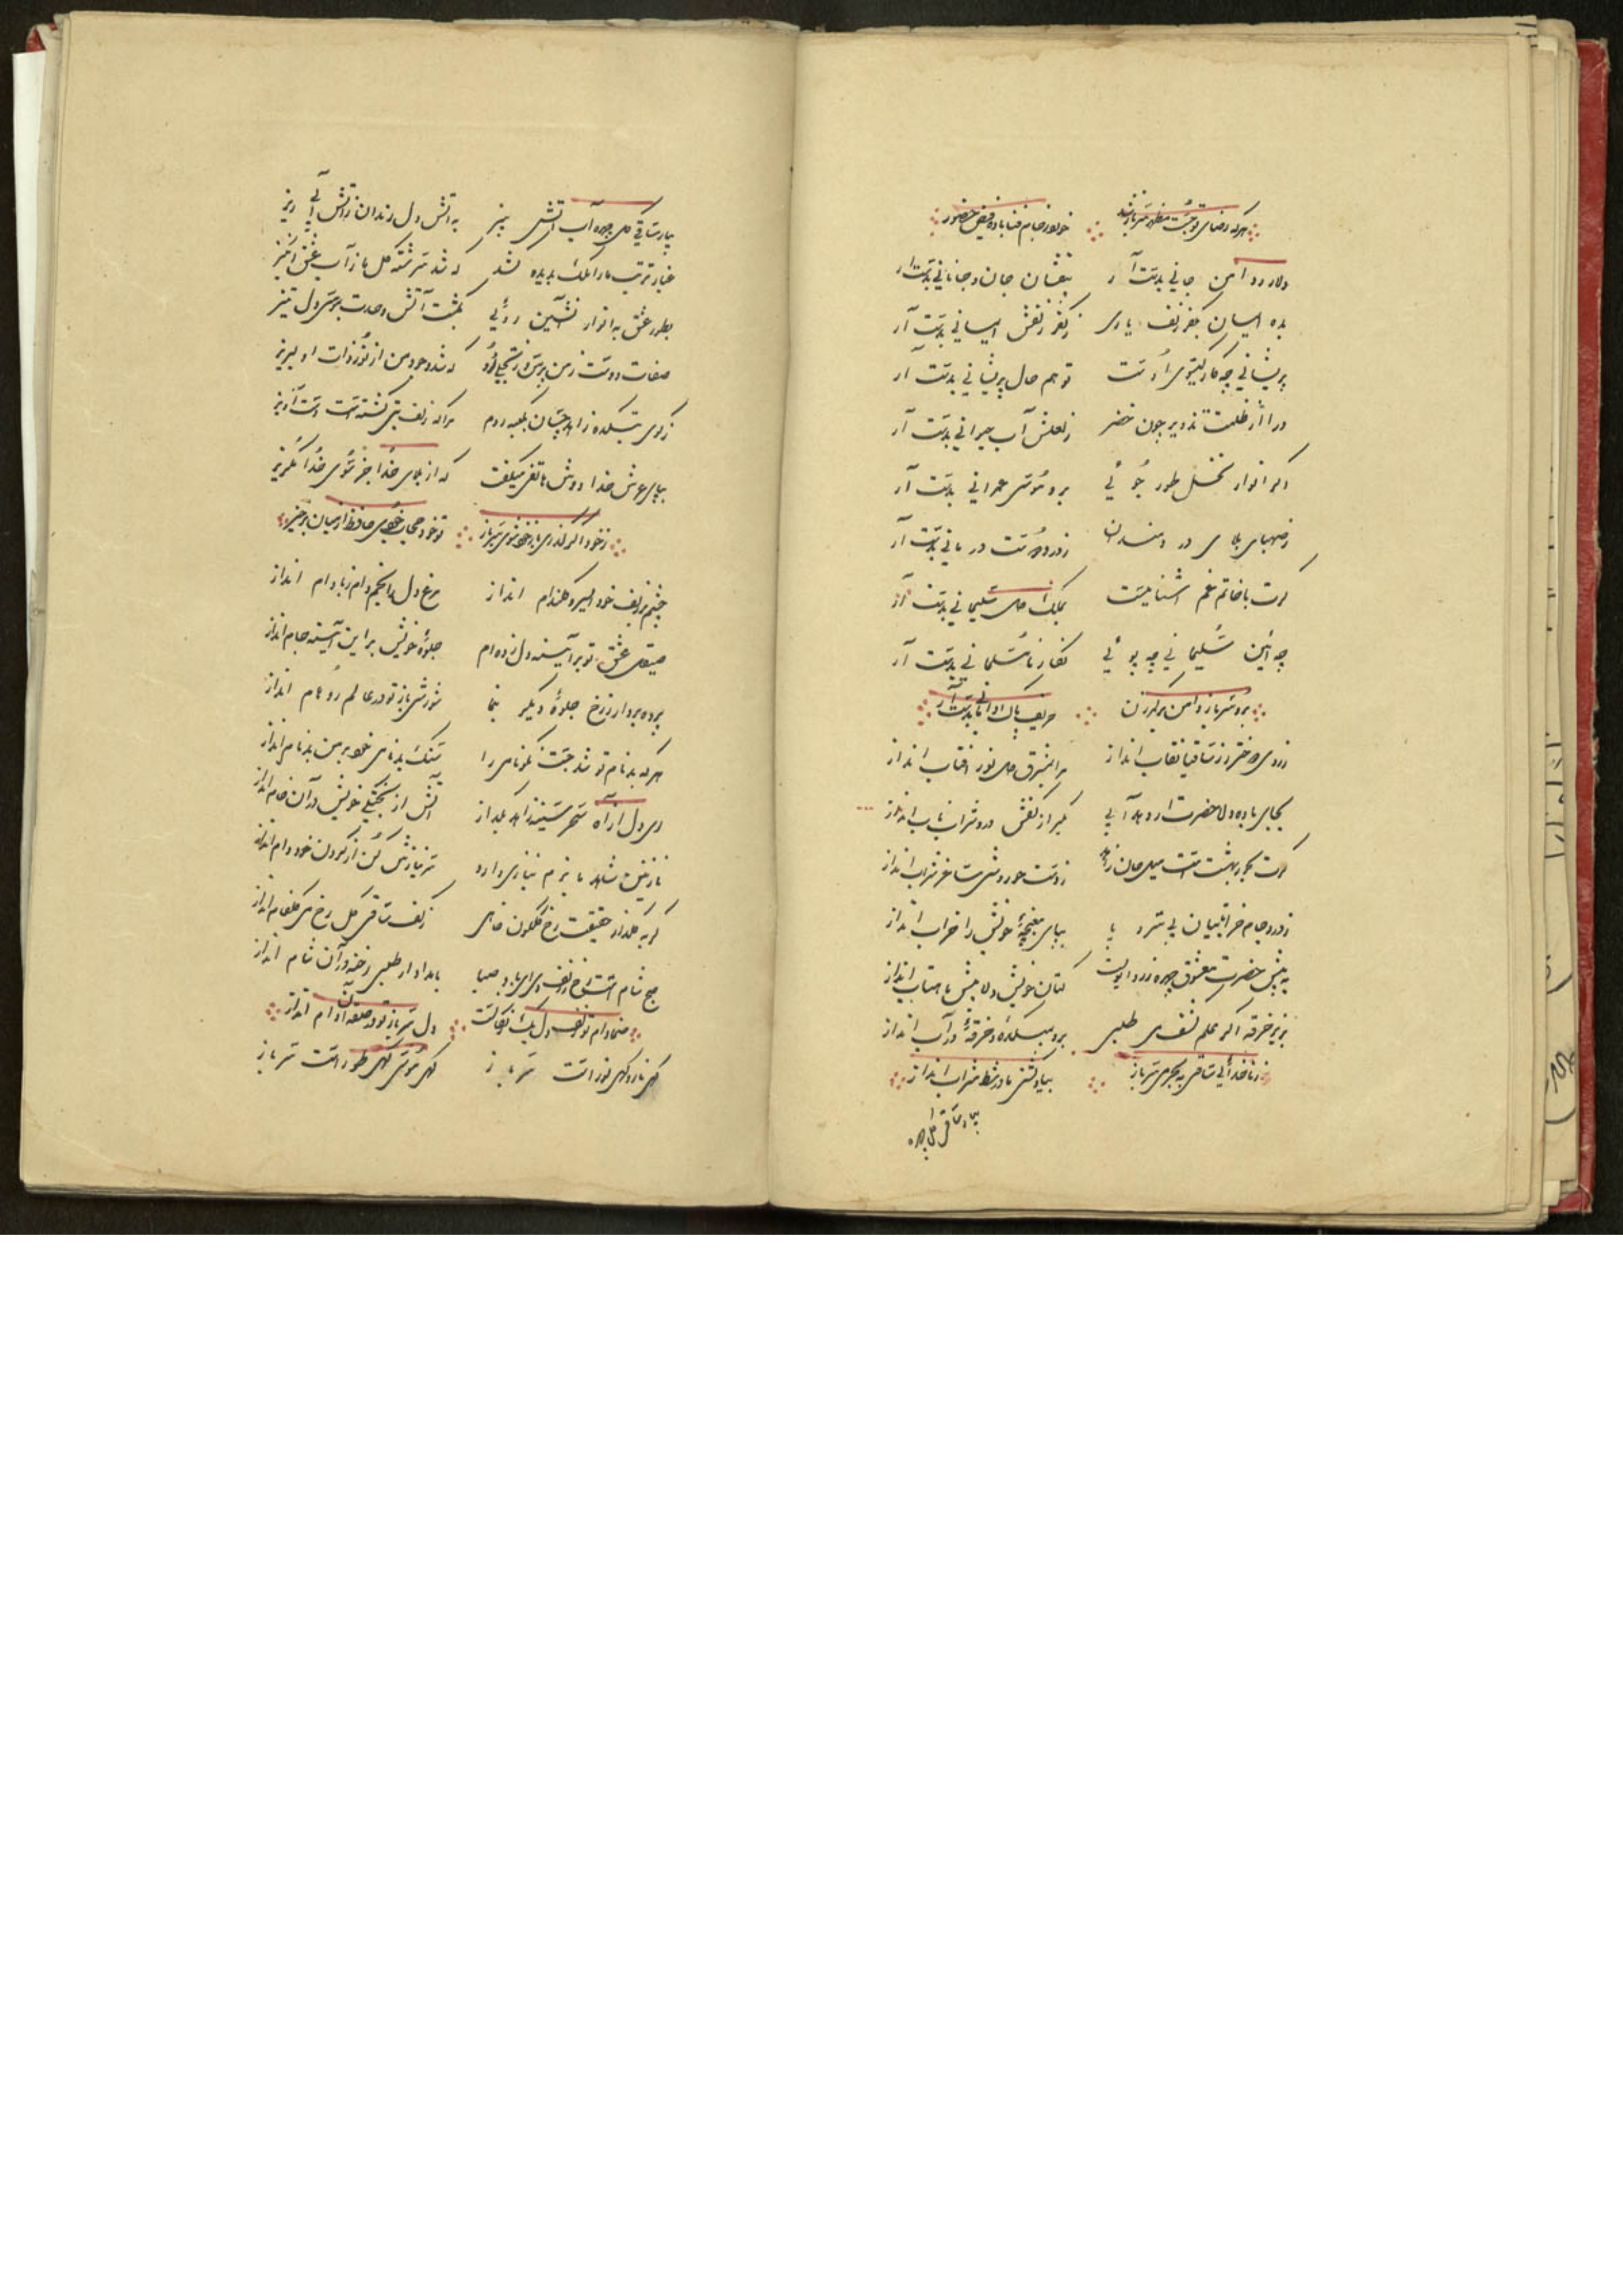 هرکه رضای تو جست مظهر سرباز شد خورد ز جام فنا باده فیض حضور
دلا رو دامن جانی بدست آر بیفشان جان و جانانی بدست آر
بده ایمان بکفر زلف یاری ز کفر زلفش ایمانی بدست آر
پریشانی چه کار گیسوی اوست تو هم حال پریشانی بدست آر
درا از ظلمت تزویر چون خضر ز لعلش آب حیوانی بدست آر
اگر انوار نخل طور جوئی برو موسی عمرانی بدست آر
ز صهبای بلای دردمندان ز درد دوست درمانی بدست آر
گرت با خاتم غم آشنائیست بملک دل سلیمانی بدست آر
چه آئین سلیمانی چه پوئی نامسلمانی بدست آر
برو سرباز دامن بر کمر زن حریف پاک دامانی بدست آر
ز روی دختر رز ساقیا نقاب انداز بر مشرق دل نور آفتاب انداز
بجای باده دلا حضرت ار دهد آبی بگیر از کفش در شراب ناب انداز
گرت بحور بهشت است میل جان زاهد ز دست حوروشی ساغر شراب انداز
ز درد جام خراباتیان بی سر و پا بپای مغبچه خویش را خراب انداز
به پیش حضرت معشوق چهره زرد اولیست کتان خویش دلا پیش ماهتاب انداز
بزیر خرقه اگر علم نفس میطلبی برو بمیکده و خرقه در آب انداز
ز ناخدائی ساقی به بحر می سرباز بیا و کشتی ما در شط شراب انداز
بیا ساقی گل چهره
بیا ساقی گل چهره آب آتش بیز به آتش دل رندان ز آتش آبی ریز
غبار تربت ما را ملک بدیده کشد که شد سرشته گل ما ز آب عشق آمیز
بطور عشق به انوار آتشین روئی بگشت آتش وحدت بموسی دل تیز
صفات دوست ز من پرس در تجلی او که شد وجود من از نور ذات او لبریز
ز کوی بتکده زاهد چسان بکعبه روم مرا که زلف بتی گشته است دست آویز
بپای عرش خدا دوش هاتفی میگفت که از بلای خدا جز سوی خدا مگریز
ز خود اگر گذری باز خود شوی سرباز تو خود حجاب خودی حافظ از میان برخیز
چشم زلف خود امیر و کمندام انداز مرغ دل را بخم دام ز بادام انداز
صیقل عشق تو بر آئینه دل زده ام جلوه خویش بر این آئینه جام انداز
پرده بردار ز رخ جلوه دیگر بنما شورشی باز تو در عالم انداز
هرکه بدنام تو شد جست نکونامی را ننگ بدنامی خود بر من بدنام انداز
ای دل از آه سحر سینه زاهد بگداز آتش از تجلی خویش در آن خام انداز
نازنین شاهد ما بزم نیازی دارد سر نیازش کن و از گردن خود دام انداز
گر به گلزار حقیقت رخ گلگون خواهی ز کف ساقی گل رخ می گلفام انداز
صبح شام است رخ و زلف وی ای باد صبا بامداد ار طلبی رخنه در آن شام انداز
صنما دام تو زلف دل سرباز تو در حلقه آن دام انداز
گهی نار و گهی نور است سرباز گهی موسی گهی طور است سرباز